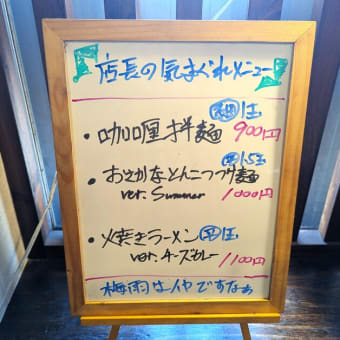 店長の気まぐれメニュー
細 1玉
・咖喱拌麺 900円
平 1.5玉
・おさかなとんこつつけ麺
ver. Summer 1000円
・焼きラーメン 平 1玉
ver. チーズカレー 1100円
梅雨はイヤですなぁ